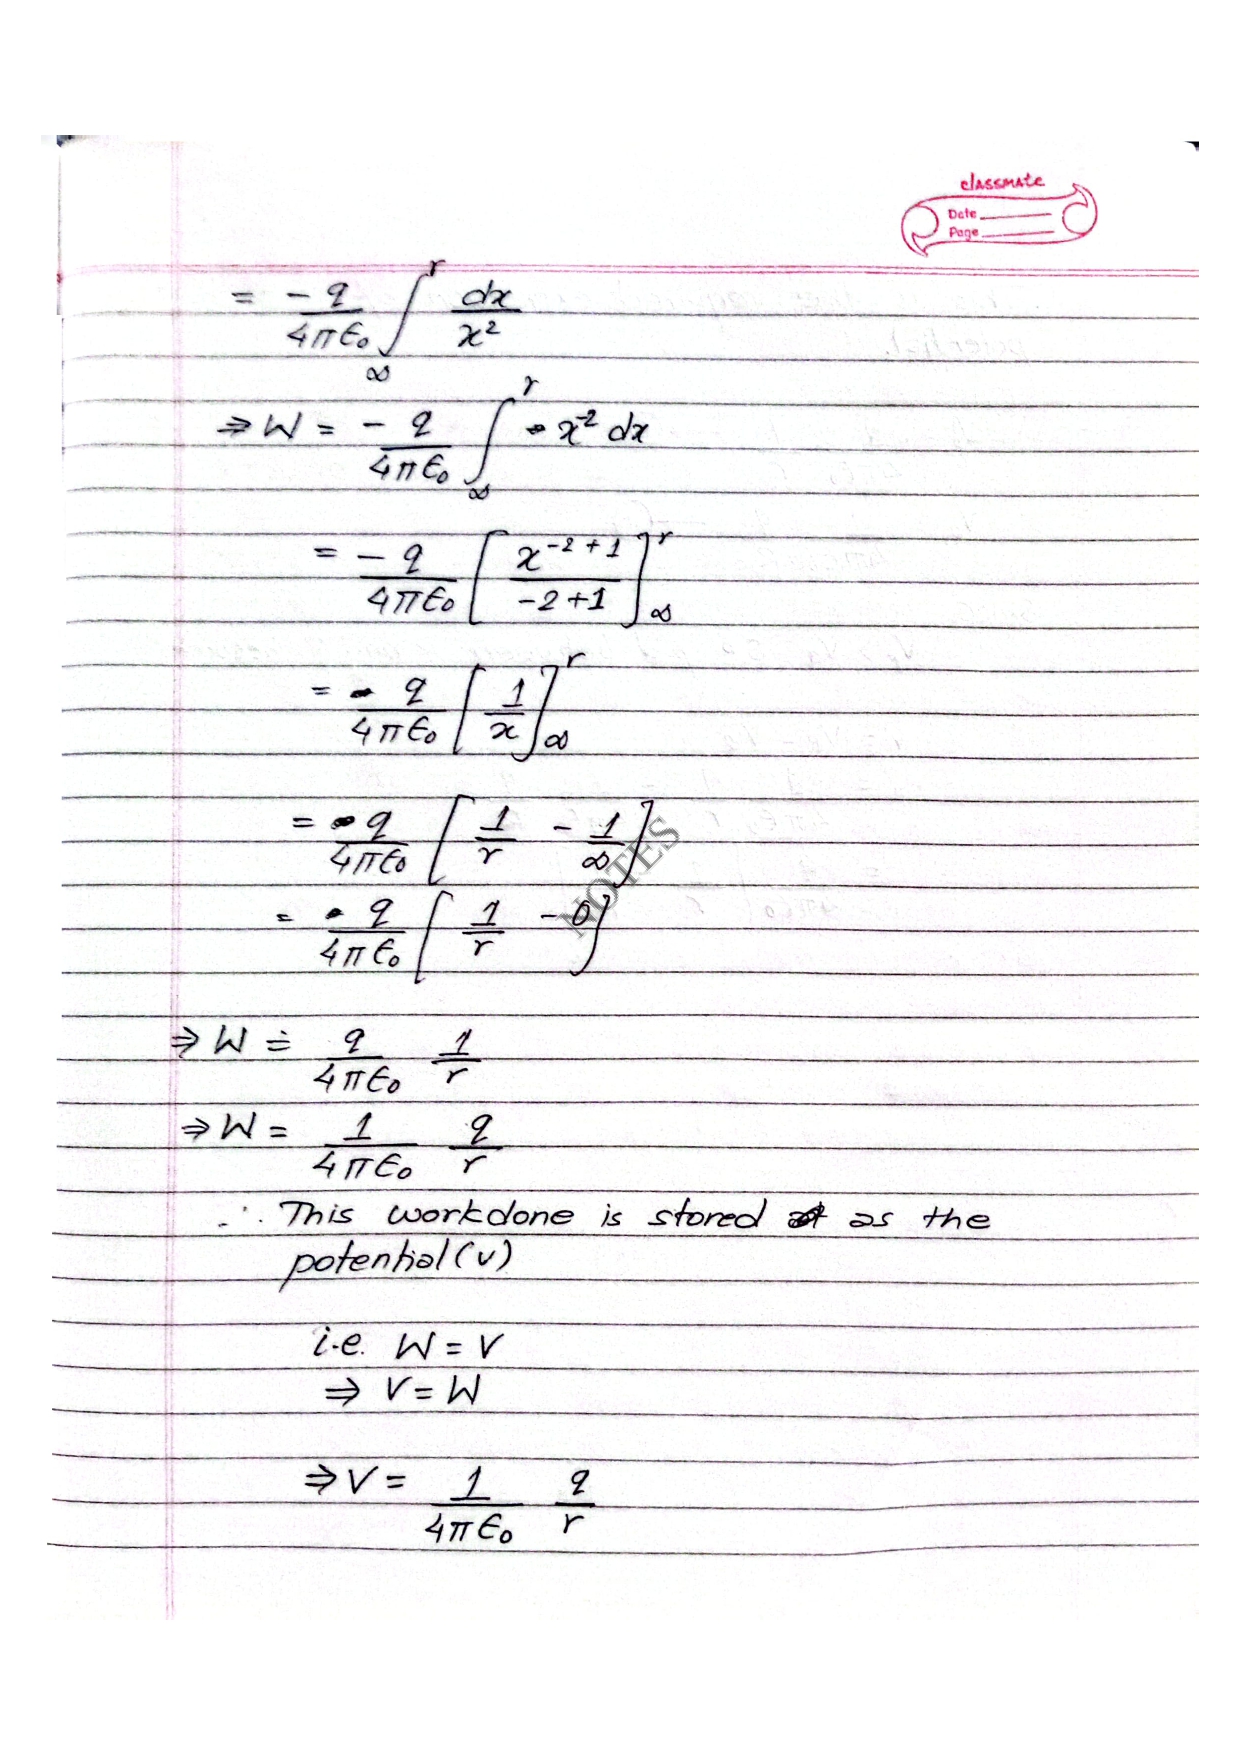 classmate
Date
Page
= -q/4πϵ₀ ∫_∞^r dx/x²
⇒ W = -q/4πϵ₀ ∫_∞^r x⁻² dx
= -q/4πϵ₀ [x⁻²⁺¹/-2+1]_∞^r
= q/4πϵ₀ [1/x]_∞^r
= q/4πϵ₀ [1/r - 1/∞]
= q/4πϵ₀ [1/r - 0]
NOTES
⇒ W = q/4πϵ₀ 1/r
⇒ W = 1/4πϵ₀ q/r
∴ This workdone is stored as the
potential (v)
i.e. W = V
⇒ V = W
⇒ V = 1/4πϵ₀ q/r